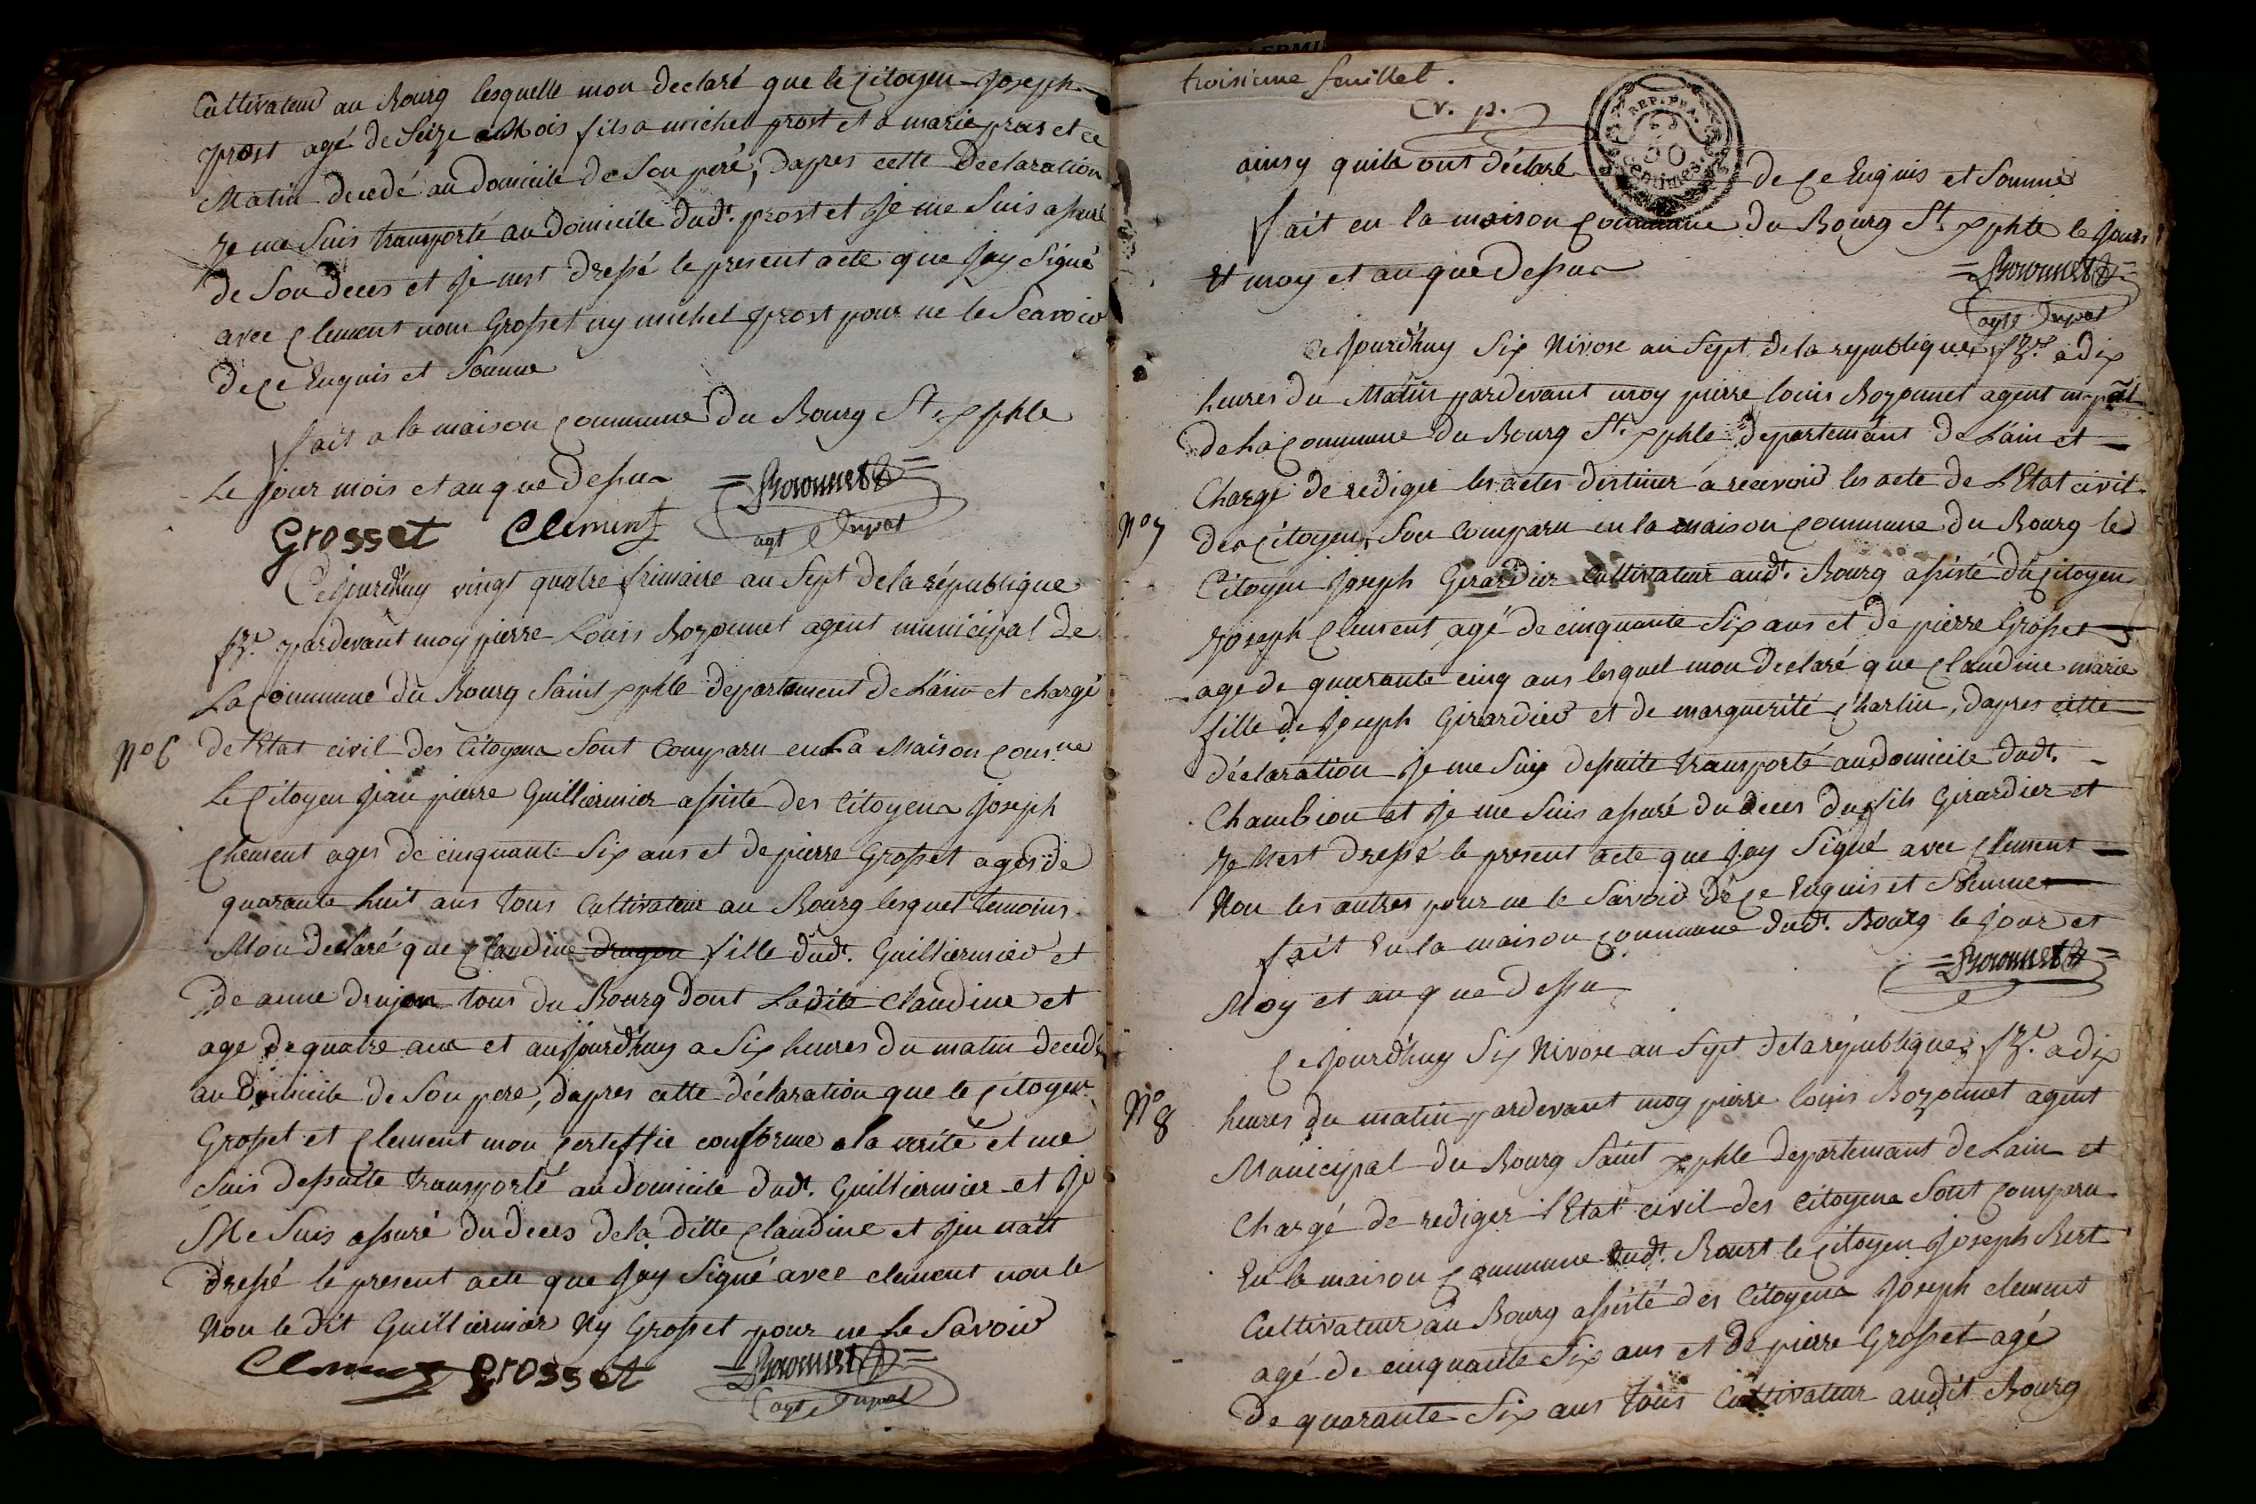 Cultivateur au Bourg lesquelle mon declaré que le Citoyen Joseph
prost agé de Seize Mois fils a michel prost et a marie pras et ce
Matin decedé au domicile de Son peré, dapres cette Declaration
Je me Suis transporté au Domicile dudt. prost et Je me Suis assuré
de Son deces et Je nest dressé le present acte que Jay Signé
avec Clement nom Grosset ny michel prost pour ne le Scavoir
de Ce Enquis et Somme
fait a la maison Commune du Bourg St. xphle
Le Jour mois et an que dessus
Grosset Clement Bozonnet
agt
Cejourdhuy vingt quatre frimaire an Sept de la république
fse. pardevant moy pierre Louis Bozonnet agent municipal de
La Commune du Bourg Saint xphle departement de Lain et chargé
No 6 de lEtat civil des Citoyens Sont Comparu en La Maison Comne
Le Citoyen Jean pierre Guilliermier assiste des Citoyens Joseph
Clement ages de cinquante Six ans et de pierre Grosset ages de
quarante huit ans tous Cultivateur au Bourg lesquel temoins
Mon declaré que Claudine drugon fille dudt. Guilliermier et
de anne drujon tous du Bourg dont Ladite Claudine et
age de quatre ans et aujourdhuy a Six heures du matin decedé
au Domicile de Son pere, dapres cette déclaration que le Citoyen
Grosset et Clement mon certeffie conforme a la verité et me
Suis dessuite transporté au Domicile dudt. Guilliermier et Je
Me Suis assuré du deces de la ditte Claudine et Jen nait
dressé le present acte que Jay Signé avec clement non le
Non le dit Guilliermier Ny Grosset pour ne Le Savoir
Clement Grosset Bozonnet
agt
troisieme feuillet.
v. p.
REP. FRA.
50
Centimes
ainsy quils ont déclaré de Ce Enquis et Sommé
fait en la maison Commune du Bourg St. xphle le Jours
Et moy et an que Dessus
Bozonnet
agt
Ce Jourdhuy Six Nivose an Sept de la republique fse. a dix
heures du Matin pardevant moy pierre louis Bozonnet agent mpal
de La Commune du Bourg St. xphle departemant de Lain et
Chargé de rediger les actes destiner a recevoir les acte de LEtat civil
No 7 des Citoyens, Son Comparu en la maison Commune du Bourg le
Citoyen Joseph Girardier Cultivateur audt. Bourg assisté du Citoyen
Joseph Clement agé de cinquante Six ans et de pierre Grosset
age de quarante cinq ans lesquel mon declaré que Claudine marie
fille de Joseph Girardier et de marguerite Charlin, dapres cette
déclaration Je me Suis dessuite transporté au domicile dudt.
Chambion et Je me Suis assuré du deces du fils Girardier et
Je Nest dressé le present acte que Jay Signé avec Clement
Non les autres pour ne le Savoir de Ce Enquis et Somme
fait En la maison Commune dudt. Bourg le jour et
Moy et an que dessus
Bozonnet
Ce Jourdhuy Six Nivose an Sept de la république fse. a dix
No 8 heures du matin pardevant moy pierre louis Bozonnet agent
Municipal du Bourg Saint xphle departemant de Lain et
Chargé de rediger lEtat civil des Citoyens Sont Comparu
En la maison Commune dudt. Bourt le Citoyen Joseph Bert
Cultivateur au Bourg assisté des Citoyens Joseph clement
agé de cinquante Six ans et de pierre Grosset agé
de quarante Six ans tous Cultivateur audit Bourg